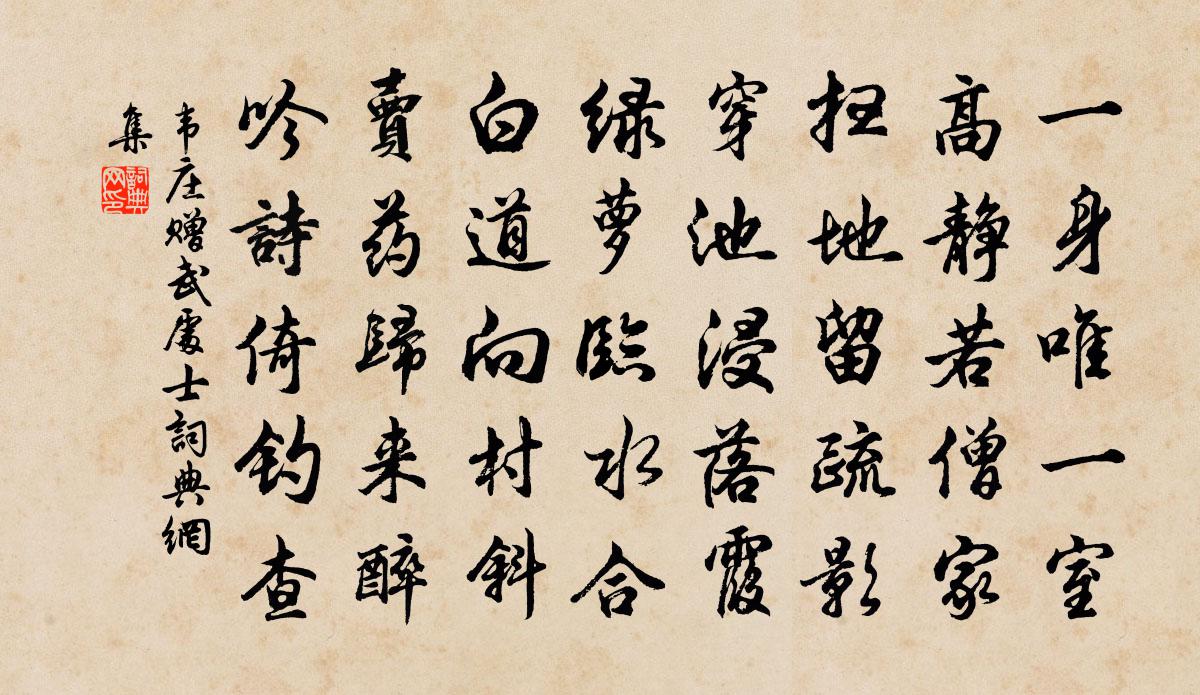 一身唯一室
高静若僧家
扫地留疏影
穿池浸落霞
绿萝临水合
白道向村斜
賣药歸来醉
吟詩倚钓查
韦庄赠武處士詞典網
集
詞典
网印